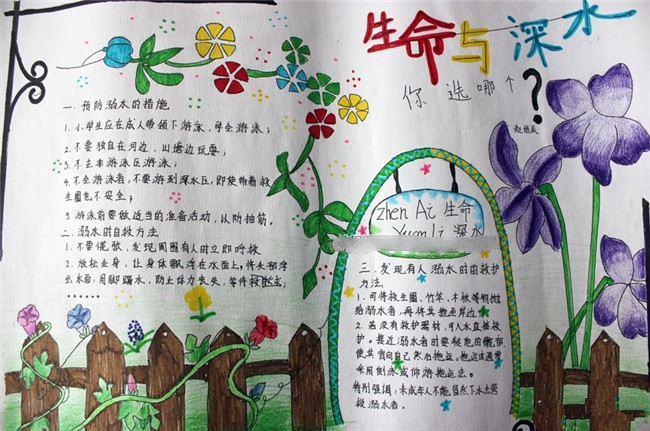 生命与深水
你选哪个?
一、预防溺水的措施
1.小学生应在成人带领下游泳,学会游泳;
2.不要独自在河边、山塘边玩耍;
3.不去非游泳区游泳;
4.不会游泳者,不要游到深水区,即使带着救
生圈也不安全;
5.游泳前要做适当的准备活动,以防抽筋。
二、溺水的自救方法
1.不要慌张,发现周围有人时立即呼救
2.放松全身,让身体飘浮在水面上,将头部浮
出水面,用脚踢水,防止体力丧失,等待救援;
......
zhen Ai 生命
Yuan Li 深水
三.发现有人溺水时的救护
方法.
1.可将救生圈、竹竿、木板等物抛
给溺水者,再将其拖至岸边;
2.若没有救护器材,可入水直接救
护。接近溺水者时要
使其背向自己
采用侧泳或仰游拖运法。
特别强调:未成年人不能
救溺水者。